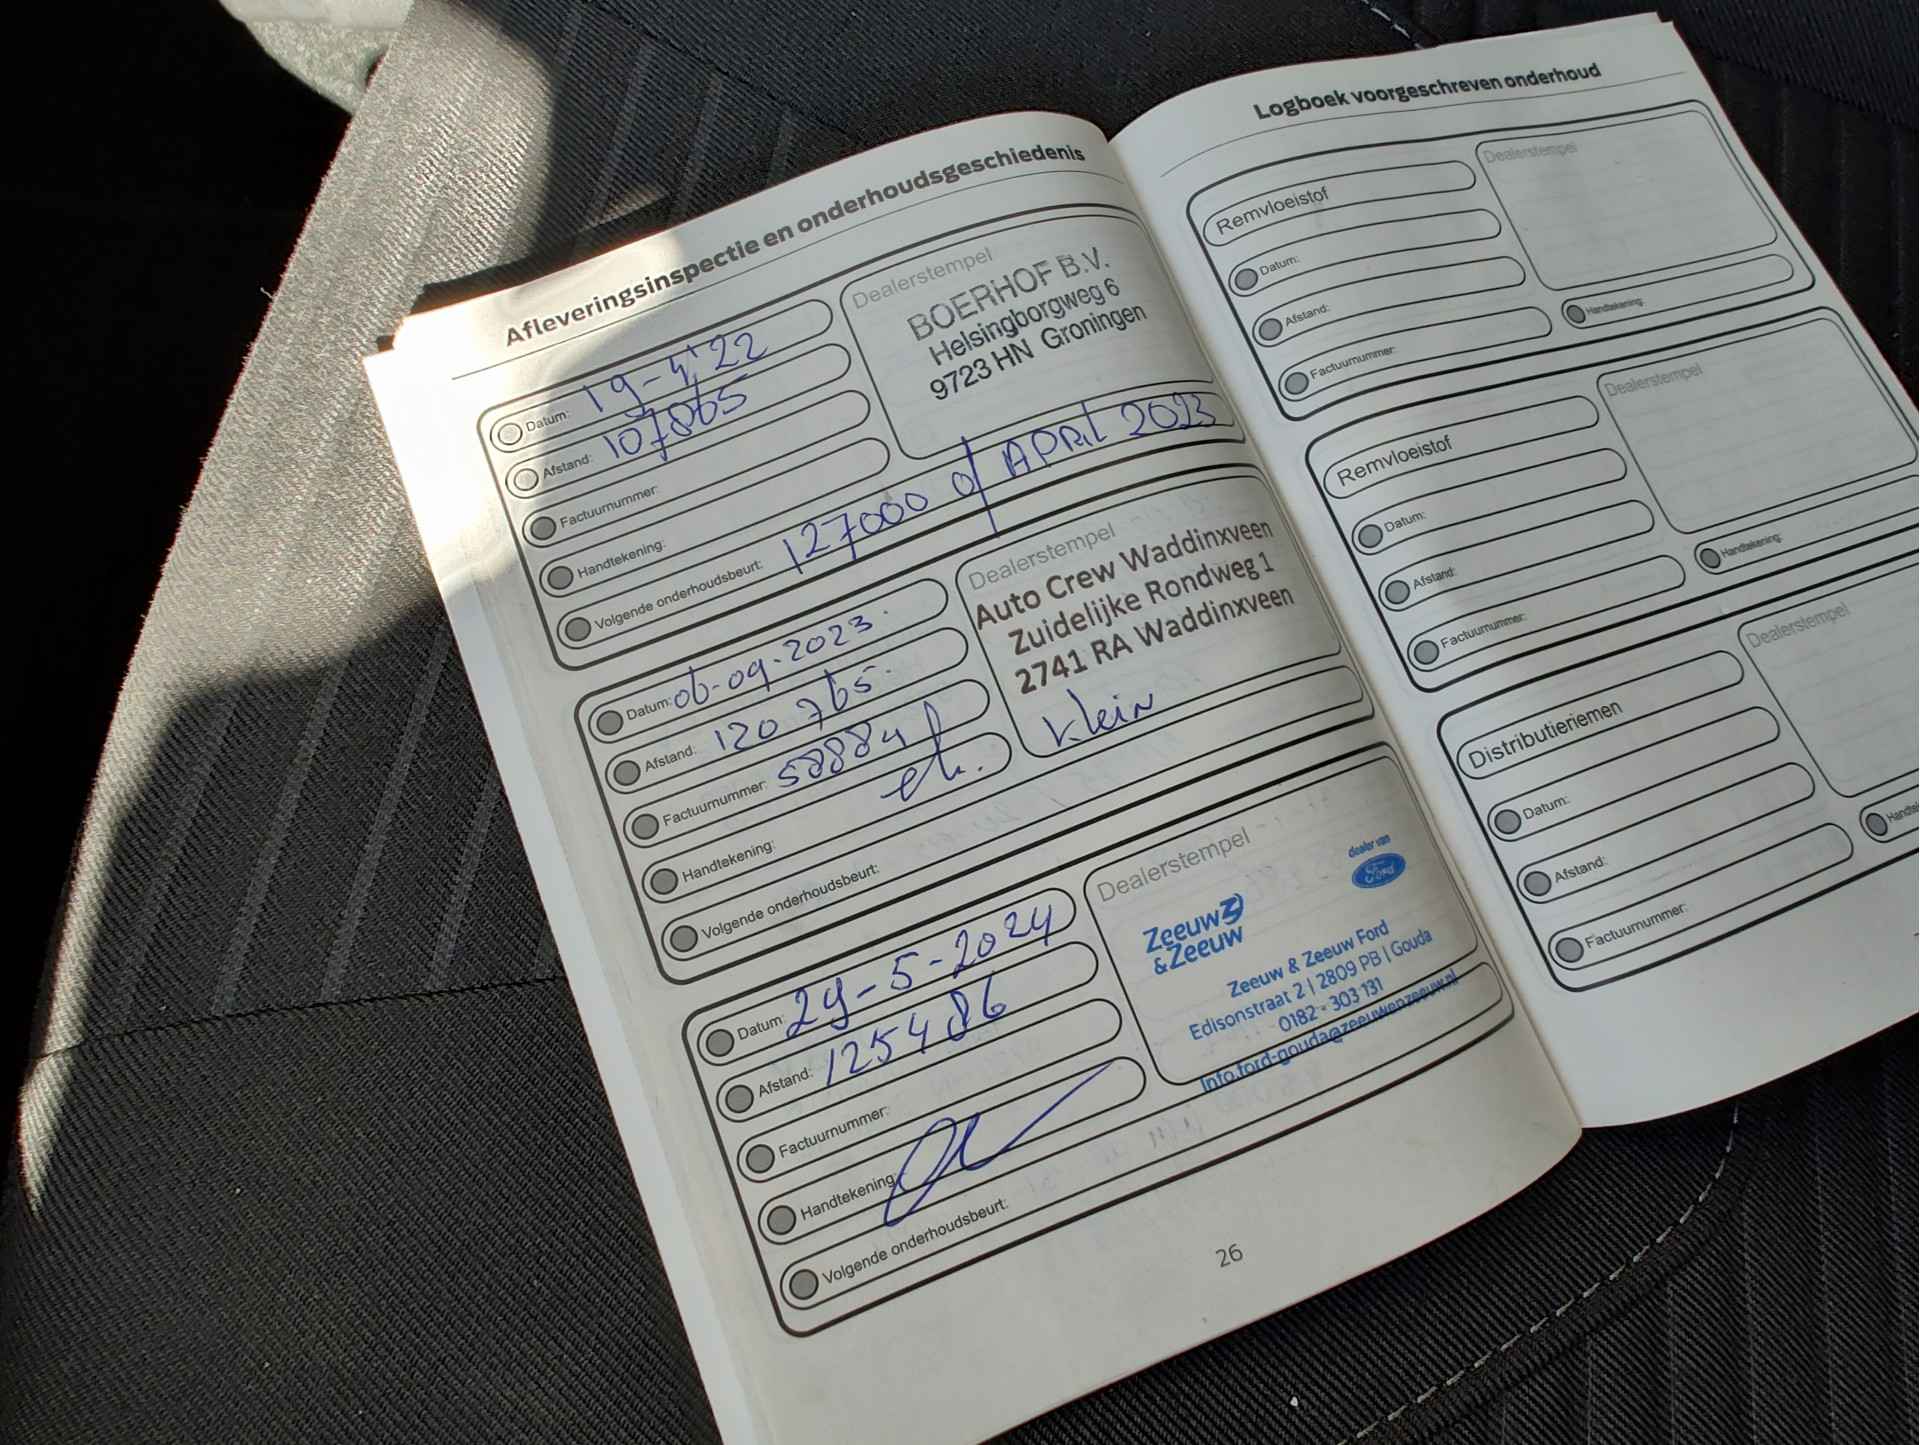 Afleveringsinspectie en onderhoudsgeschiedenis
Datum: 19-4-'22
Afstand: 107865
Factuurnummer:
Handtekening:
Volgende onderhoudsbeurt: 127000 of APRil 2023
Dealerstempel
BOERHOF B.V.
Helsingborgweg 6
9723 HN Groningen
Datum: 06-09-2023.
Afstand: 120765.
Factuurnummer: 58884
Handtekening:
Volgende onderhoudsbeurt:
Dealerstempel
Auto Crew Waddinxveen
Zuidelijke Rondweg 1
2741 RA Waddinxveen
Klein
Datum: 29-5-2024
Afstand: 125486
Factuurnummer:
Handtekening:
Volgende onderhoudsbeurt:
Dealerstempel
dealer van
Ford
Zeeuw
& Zeeuw
Zeeuw & Zeeuw Ford
Edisonstraat 2 | 2809 PB | Gouda
0182 - 303 131
Info.ford-gouda@zeeuwenzeeuw.nl
26
Logboek voorgeschreven onderhoud
Remvloeistof
Datum:
Afstand:
Factuurnummer:
Dealerstempel
Handtekening:
Remvloeistof
Datum:
Afstand:
Factuurnummer:
Dealerstempel
Handtekening:
Distributieriemen
Datum:
Afstand:
Factuurnummer:
Dealerstempel